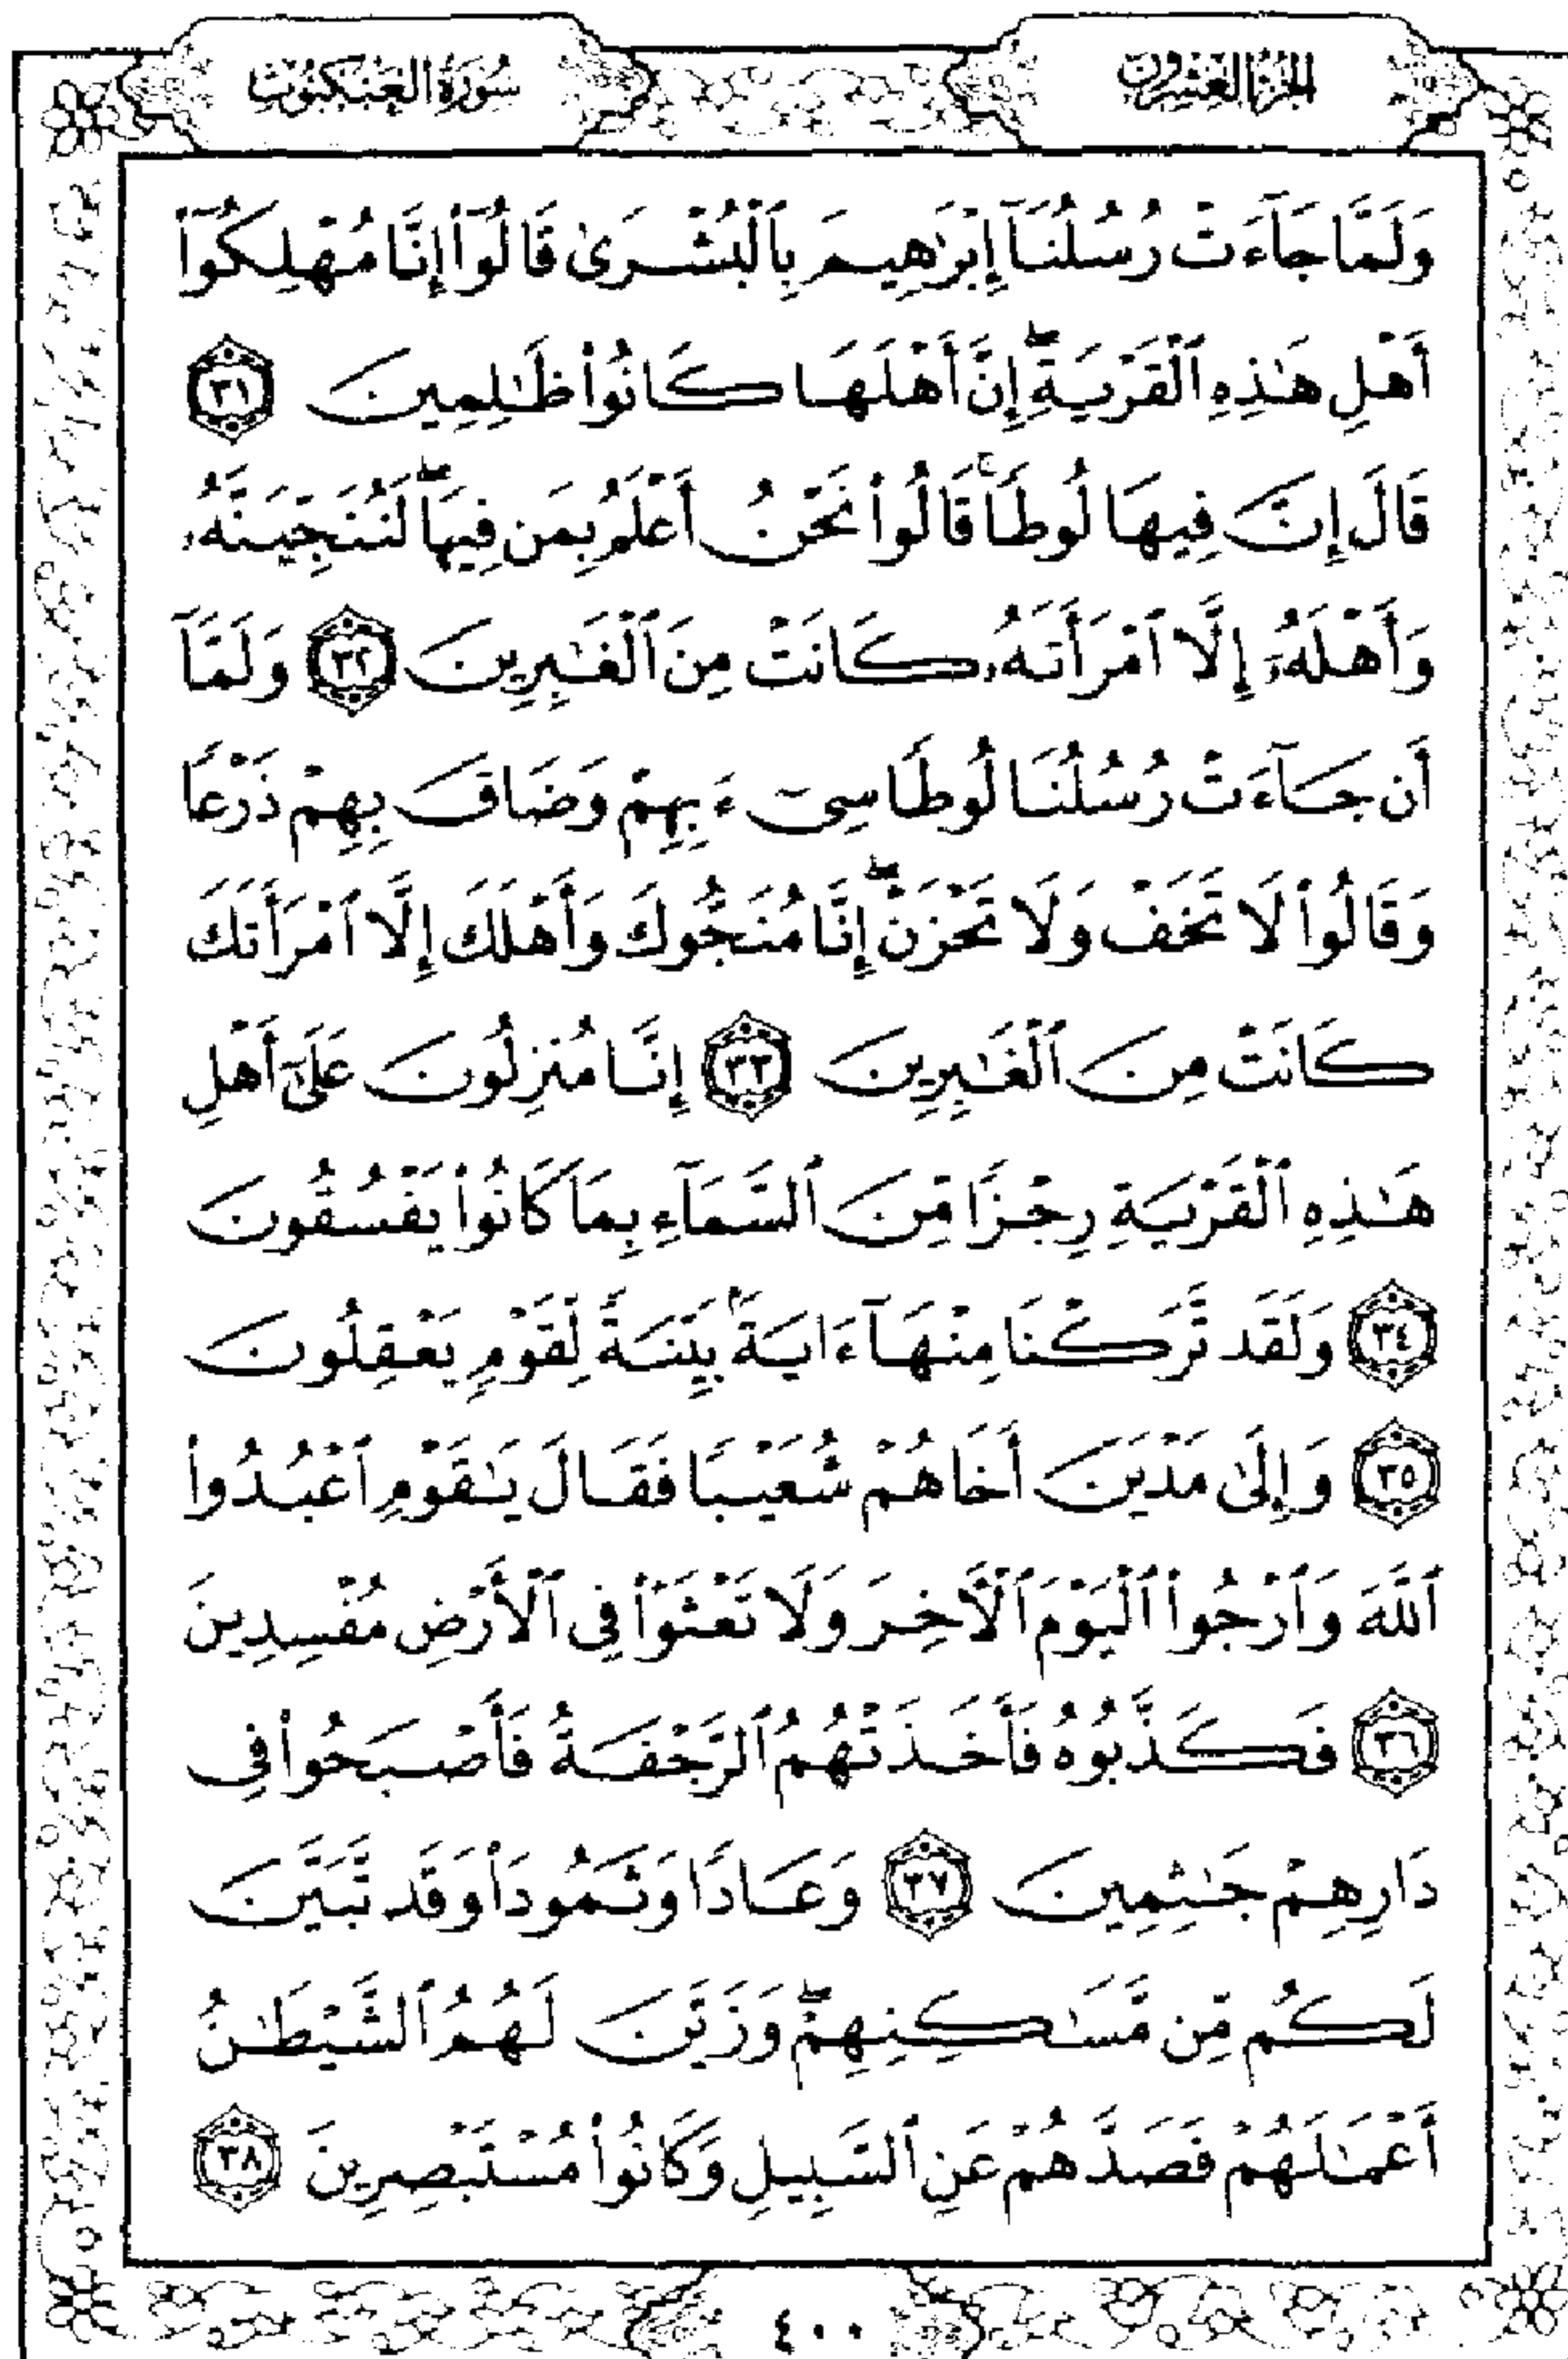 الجزء العشرون
سورة العنكبوت
وَلَمَّا جَآءَتْ رُسُلُنَآ إِبْرَٰهِيمَ بِٱلْبُشْرَىٰ قَالُوٓا۟ إِنَّا مُهْلِكُوٓا۟
أَهْلِ هَٰذِهِ ٱلْقَرْيَةِۖ إِنَّ أَهْلَهَا كَانُوا۟ ظَٰلِمِينَ ٣١
قَالَ إِنَّ فِيهَا لُوطًاۚ قَالُوا۟ نَحْنُ أَعْلَمُ بِمَن فِيهَاۖ لَنُنَجِّيَنَّهُۥ
وَأَهْلَهُۥٓ إِلَّا ٱمْرَأَتَهُۥ كَانَتْ مِنَ ٱلْغَٰبِرِينَ ٣٢ وَلَمَّآ
أَن جَآءَتْ رُسُلُنَا لُوطًا سِىٓءَ بِهِمْ وَضَاقَ بِهِمْ ذَرْعًا
وَقَالُوا۟ لَا تَخَفْ وَلَا تَحْزَنْۖ إِنَّا مُنَجُّوكَ وَأَهْلَكَ إِلَّا ٱمْرَأَتَكَ
كَانَتْ مِنَ ٱلْغَٰبِرِينَ ٣٣ إِنَّا مُنزِلُونَ عَلَىٰٓ أَهْلِ
هَٰذِهِ ٱلْقَرْيَةِ رِجْزًا مِّنَ ٱلسَّمَآءِ بِمَا كَانُوا۟ يَفْسُقُونَ
٣٤ وَلَقَد تَّرَكْنَا مِنْهَآ ءَايَةًۢ بَيِّنَةً لِّقَوْمٍ يَعْقِلُونَ
٣٥ وَإِلَىٰ مَدْيَنَ أَخَاهُمْ شُعَيْبًا فَقَالَ يَٰقَوْمِ ٱعْبُدُوا۟
ٱللَّهَ وَٱرْجُوا۟ ٱلْيَوْمَ ٱلْءَاخِرَ وَلَا تَعْثَوْا۟ فِى ٱلْأَرْضِ مُفْسِدِينَ
٣٦ فَكَذَّبُوهُ فَأَخَذَتْهُمُ ٱلرَّجْفَةُ فَأَصْبَحُوا۟ فِى
دَارِهِمْ جَٰثِمِينَ ٣٧ وَعَادًا وَثَمُودَا۟ وَقَد تَّبَيَّنَ
لَكُم مِّن مَّسَٰكِنِهِمْۖ وَزَيَّنَ لَهُمُ ٱلشَّيْطَٰنُ
أَعْمَٰلَهُمْ فَصَدَّهُمْ عَنِ ٱلسَّبِيلِ وَكَانُوا۟ مُسْتَبْصِرِينَ ٣٨
٤٠٠